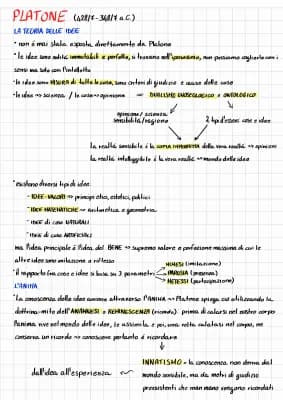 PLATONE (428/7-348/7 a.C.)
LA TEORIA DELLE IDEE
• non è mai stata esposta direttamente da Platone
• le idee sono entità immutabili e perfette, si trovano nell'iperuranio, non possiamo coglierle con i
sensi ma solo con l'intelletto
• le idee sono MISURA di tutte le cose, sono criteri di giudizio e cause delle cose
• le idee → scienza / le cose → opinione → DUALISMO GNOSEOLOGICO e ONTOLOGICO
opinione/scienza
sensibilità/ragione
2 tipi d'esseri cose e idee
la realtà sensibile è la copia imperfetta della vera realtà → opinioni
la realtà intellegibile è la vera realtà → mondo delle idee
• esistono diversi tipi di idee:
- IDEE-VALORI → principi etici, estetici, politici
- IDEE MATEMATICHE → aritmetica e geometria
- IDEE di cose NATURALI
- IDEE di cose ARTIFICIALI
ma l'idea principale è l'idea del BENE → supremo valore e perfezione massima di cui le
altre idee sono imitazione o riflesso
• il rapporto fra cose e idee si basa su 3 parametri
MIMESI (imitazione)
PARUSIA (presenza)
METESSI (partecipazione)
L'ANIMA
• la conoscenza delle idee avviene attraverso l'ANIMA → Platone spiega ciò utilizzando la
dottrina-mito dell'ANAMNESI o REMINISCENZA (ricordo): prima di calarsi nel nostro corpo
l'anima vive nel mondo delle idee, le assimila e poi, una volta calatasi nel corpo, ne
conserva un ricordo → conoscere pertanto è ricordare
INNATISMO - la conoscenza non deriva dal
mondo sensibile, ma da metri di giudizio
preesistenti che man mano vengono ricordati
dall'idea all'esperienza